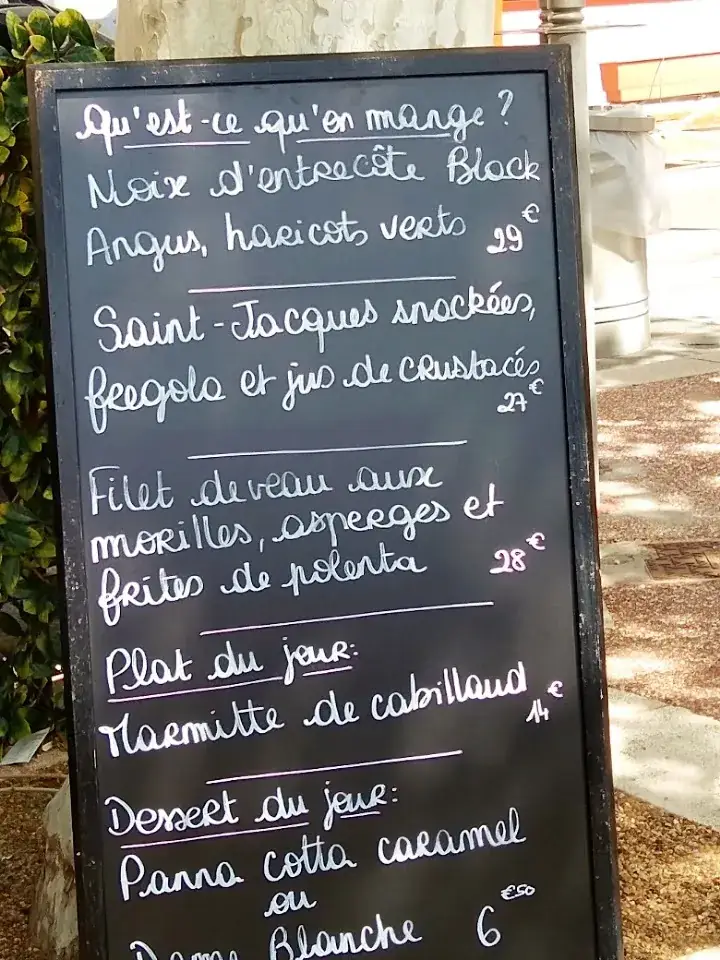 Qu'est-ce qu'on mange ?
Noix d'entrecôte Black
Angus, haricots verts 29€
Saint-Jacques snackées,
fregola et jus de crustacés
27€
Filet de veau aux
morilles, asperges et
frites de polenta 28€
Plat du jour:
Marmitte de cabillaud
14€
Dessert du jour:
Panna cotta caramel
ou
Dame Blanche 6€50